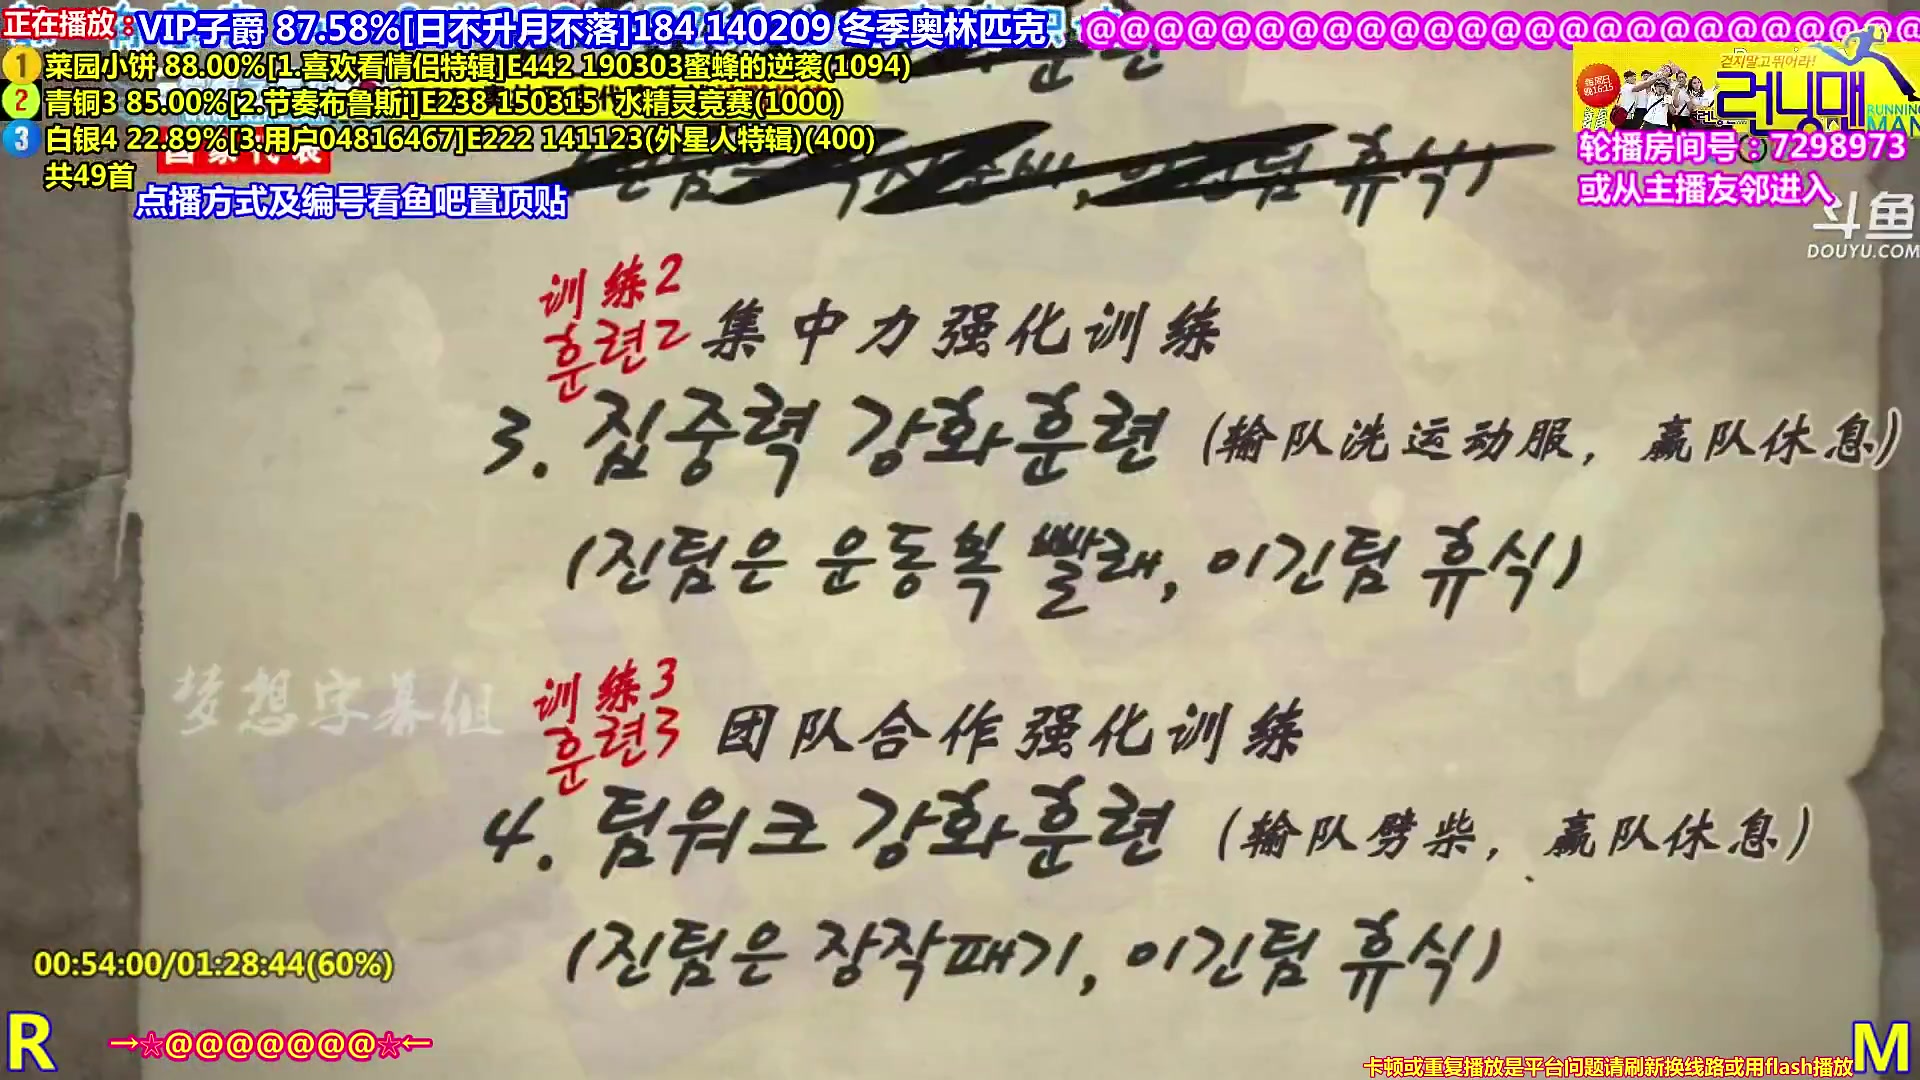 正在播放：VIP子爵 87.58%[日不升月不落]184 140209 冬季奥林匹克
@@@@@@@@@@@@@@@@@@@@@
1 菜园小饼 88.00%[1.喜欢看情侣特辑]E442 190303蜜蜂的逆袭(1094)
2 青铜3 85.00%[2.节奏布鲁斯i]E238 150315 水精灵竞赛(1000)
3 白银4 22.89%[3.用户04816467]E222 141123(外星人特辑)(400)
共49首
点播方式及编号看鱼吧置顶贴
걷지말고 뛰어라!
런닝맨
RUNNING MAN
轮播房间号：7298973
或从主播友邻进入
斗鱼
DOUYU.COM
国家代表
휴식)
训练2
훈련2 集中力强化训练
3. 집중력 강화훈련 (输队洗运动服，赢队休息)
(진팀은 운동복 빨래, 이긴팀 휴식)
梦想字幕组
训练3
훈련3 团队合作强化训练
4. 팀워크 강화훈련 (输队劈柴，赢队休息)
(진팀은 장작패기, 이긴팀 휴식)
00:54:00/01:28:44(60%)
R
→☆@@@@@@@☆←
卡顿或重复播放是平台问题请刷新换线路或用flash播放
M